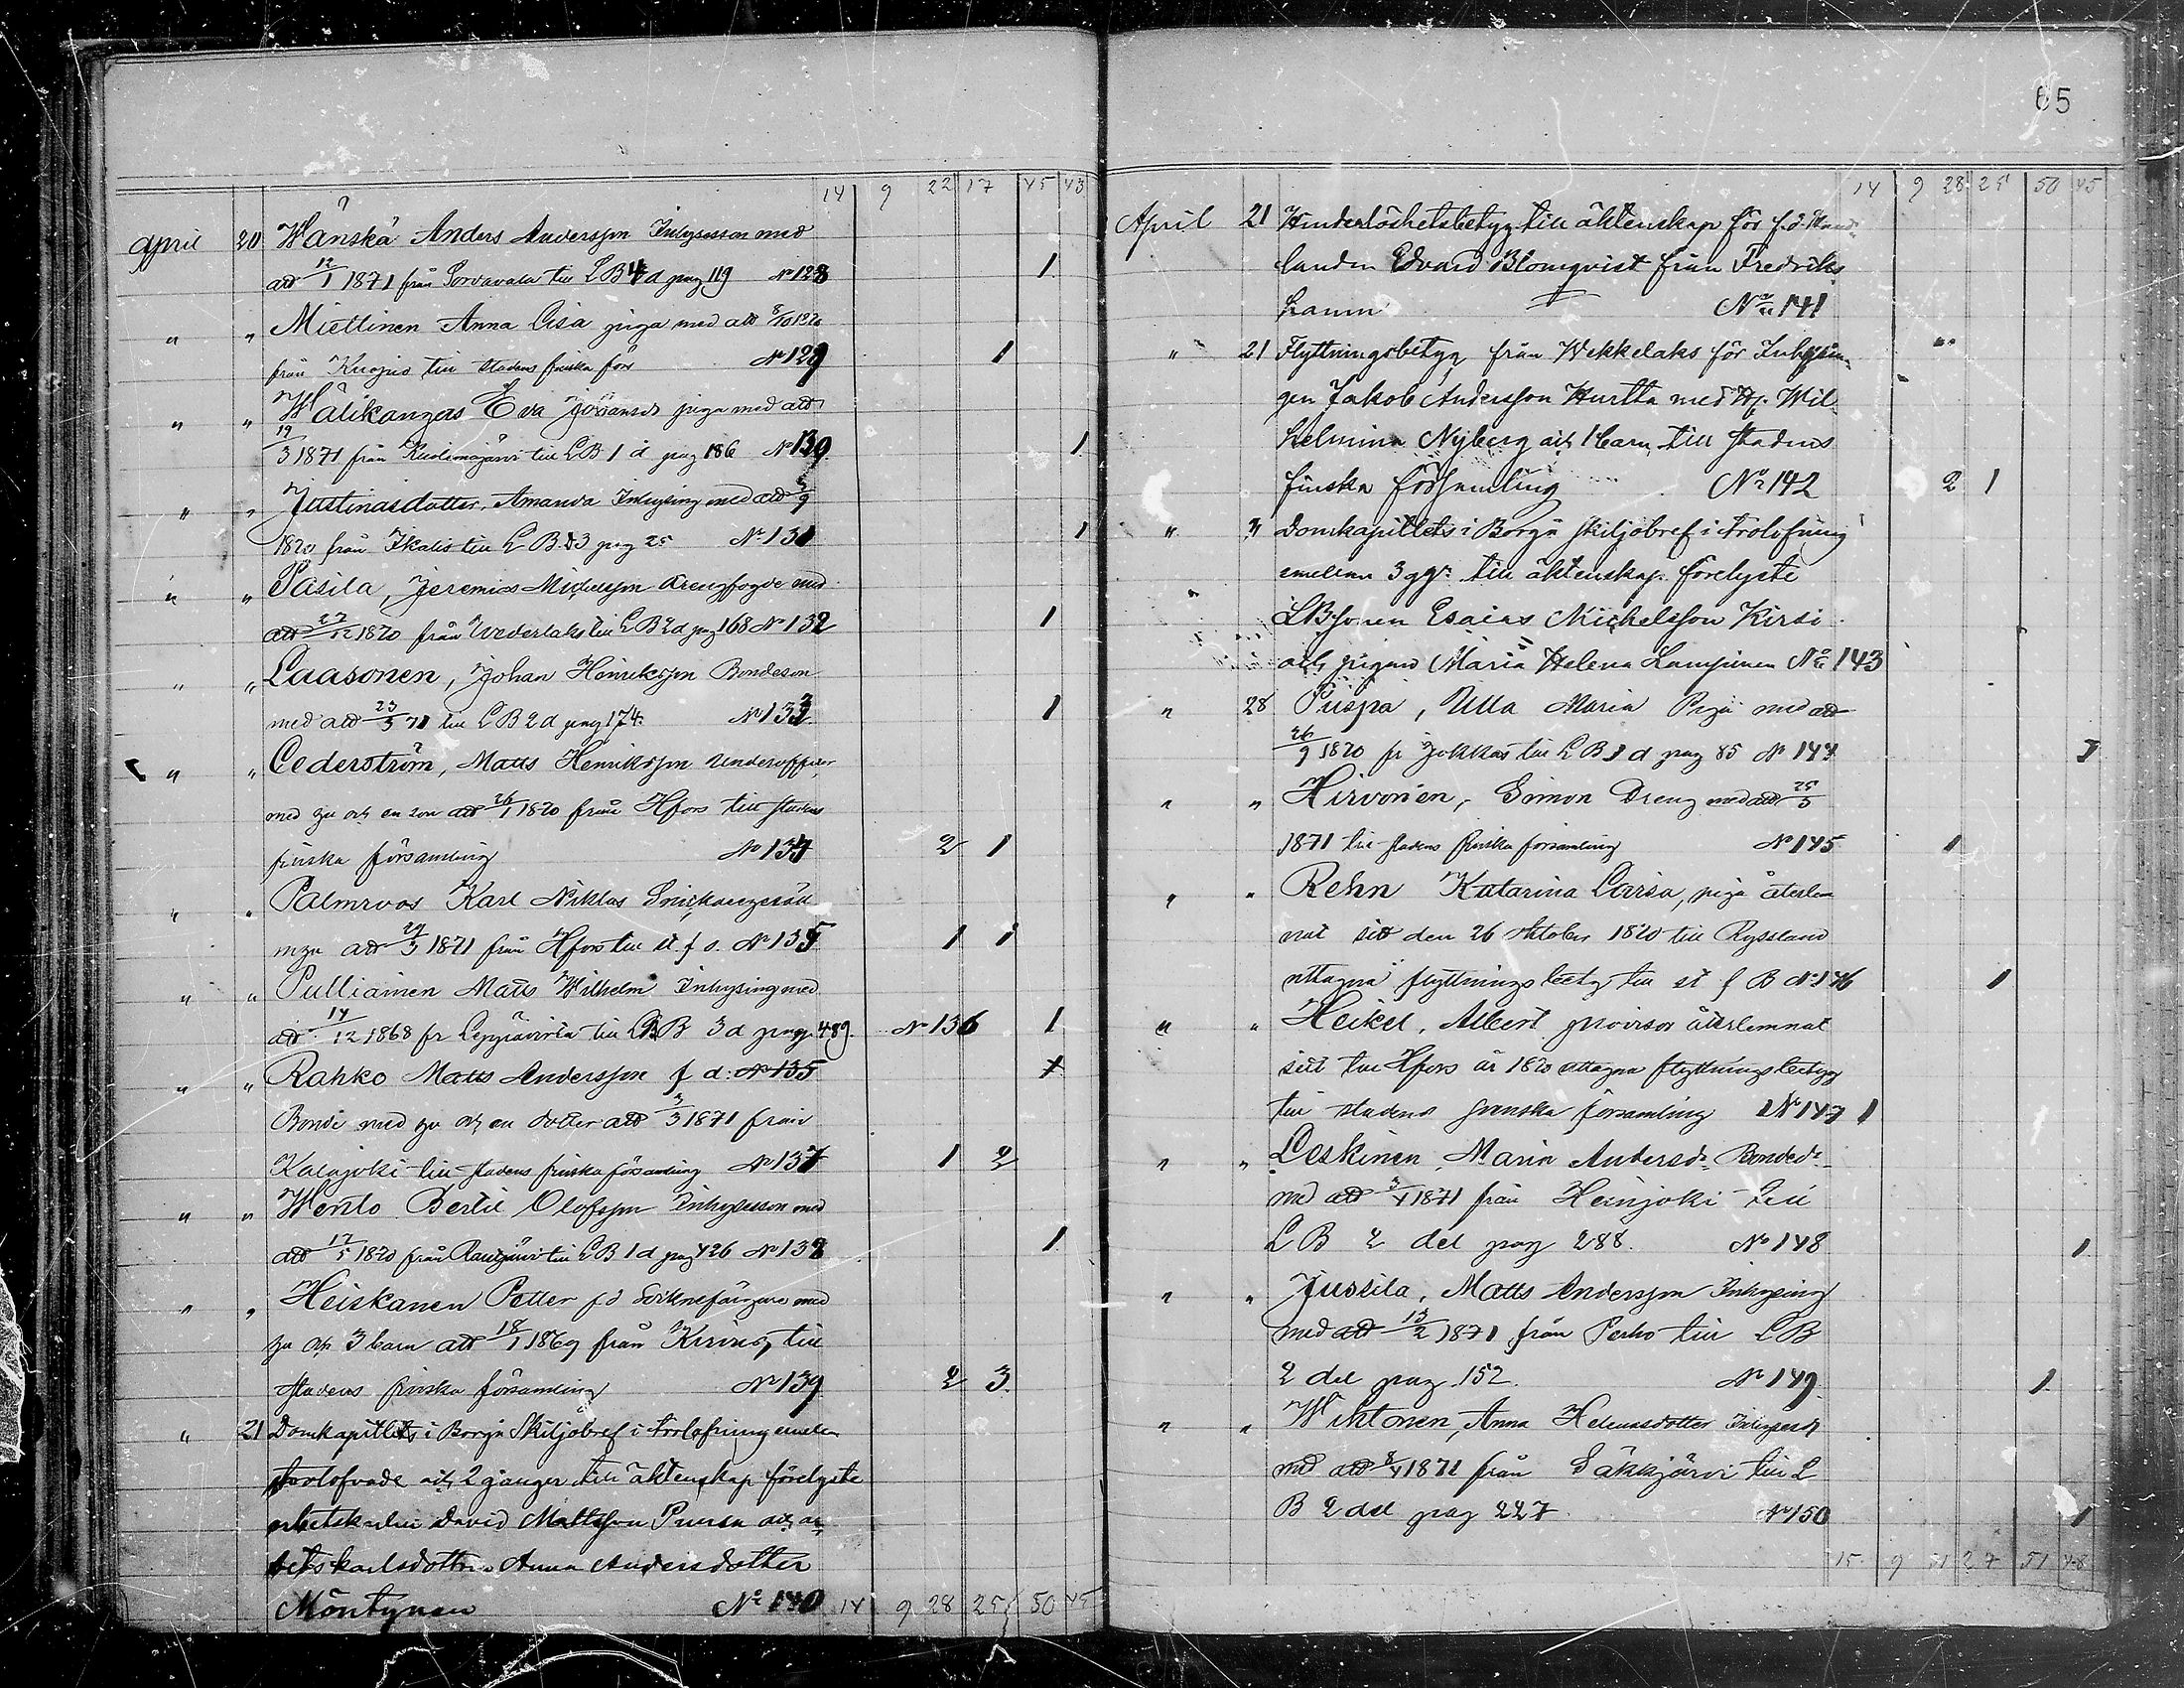 14 9 22 17 45 43
April 20 Wänskä Anders Andersson Inhysesson med
att 12/1 1871 från Sordavala till LB 4 d pag 119 No 128 1
" " Miettinen Anna Lisa piga med att 8/10 1870
från Kuopio till stadens finska förs No 129 1
" " Wälikangas Eva Johansd piga med att
19/3 1871 från Ruokmajärvi till LB 1 d pag 186 No 130 1
" " Justinasdotter, Amanda Inhysing med att 5/9
1870 från Ikalis till LB d 3 pag 25 No 131 1
" " Pasila, Jeremias Michelsson drengfogde med
att 27/12 1870 från Wederlaks till LB 2 d pag 168 No 132 1
" " Laasonen, Johan Henriksson Bondeson
med att 23/3 71 till LB 2 d pag 174. No 133 1
" " Cederström, Matts Henriksson Underofficer
med hu och en son att 26/1 1870 från Hfors till stadens
finska församling No 134 2 1
" " Palmroos Karl Niklas Snickaregesäll
m hu att 29/3 1871 från Hfors till st. f. s. No 135 1 1
" " Pulliainen Matts Wilhelm Inhysing med
att 14/12 1868 fr Leppävirta till LB 3 d pag. 489. No 136 1
" " Rahko Matts Andersson f d: No 135
Bonde med hu och en dotter att 3/3 1871 från
Kalajoki till stadens finska församling No 137 1 2
" " Wento Bertil Olofsson Inhysesson med
att 17/5 1870 från Rautjärvi till LB 1 d pag 426 No 138 1
" " Heiskanen Petter f d Socknefärgare med
hu och 3 barn att 18/1 1869 från Kivineb till
stadens finska församling No 139 2 3
" 21 Domkapitlets i Borgå Skiljobref i trolofning emellan
trolofvade och 2 gånger till äktenskap förelyste
arbetskarlen David Mattsson Pursa och ar-
betskarlsdottren Anna Andersdotter
Möntynen No 140 14 9 28 25 50 45
65
14 9 28 25 50 45
April 21 Hinderlöshetsbetyg till äktenskap för f.d. Hand-
landen Edvard Blomqvist från Fredriks
hamn No 141
" 21 Flyttningsbetyg från Wekkelaks för Inhysin-
gen Jakob Andersson Hurtta med H. Wil
helmina Nyberg och 1 barn till stadens
finska församling No 142 2 1
" " Domkapitlets i Borgå skiljobref i trolofning
emellan 3 ggr till äktenskap förelyste
LBsonen Esaias Michelsson Kirsi
och pigan Maria Helena Lampinen No 143
" 28 Puspa, Ulla Maria Piga med att
26/9 1870 fr Jokkas till LB 1 d pag 85 No 144 1
" " Hirvonen, Simon Dreng med att 25/3
1871 till stadens finska församling No 145 1
" " Rehn Katarina Carisa, piga återlem
nat sitt den 26 Oktober 1870 till Ryssland
uttagna flyttningsbetyg till st f B No 146 1
" " Heikel, Albert provisor återlemnat
sitt till Hfors år 1870 uttagna flyttningsbetyg
till stadens svenska församling No 147 1
" " Leskinen, Maria Andersdr Bondedr
med att 3/4 1871 från Heinjoki till
LB 2 del pag 288. No 148 1
" " Jussila, Matts Andersson Inhysing
med att 13/2 1871 från Perho till LB
2 del pag. 152. No 149. 1
" " Wiktonen, Anna Helenasdotter Inhyses
med att 8/4 1871 från Säkkjärvi till L
B 2 del pag 227 No 150 1
15 9 31 27 51 48